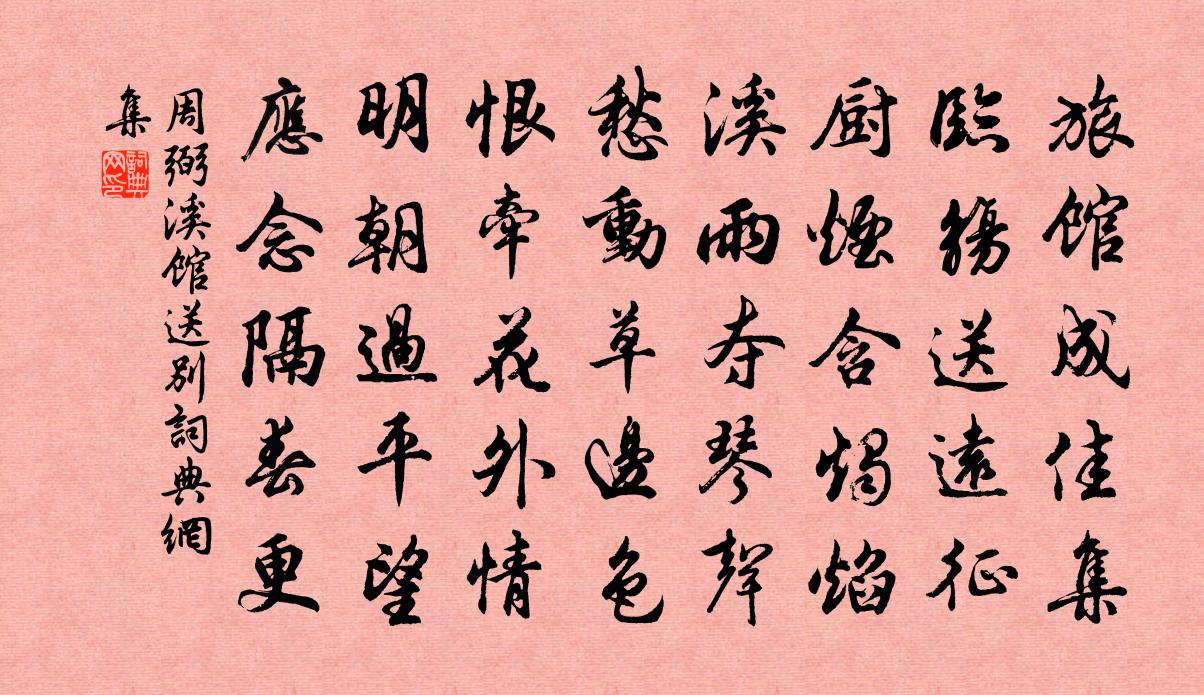 旅館成佳集
臨觴送遠征
厨煙含燭焰
溪雨夺琴聲
愁動草邊色
恨牽花外情
明朝過平望
應念隔春更
周弼溪館送别詞典網
集
詞典
网印